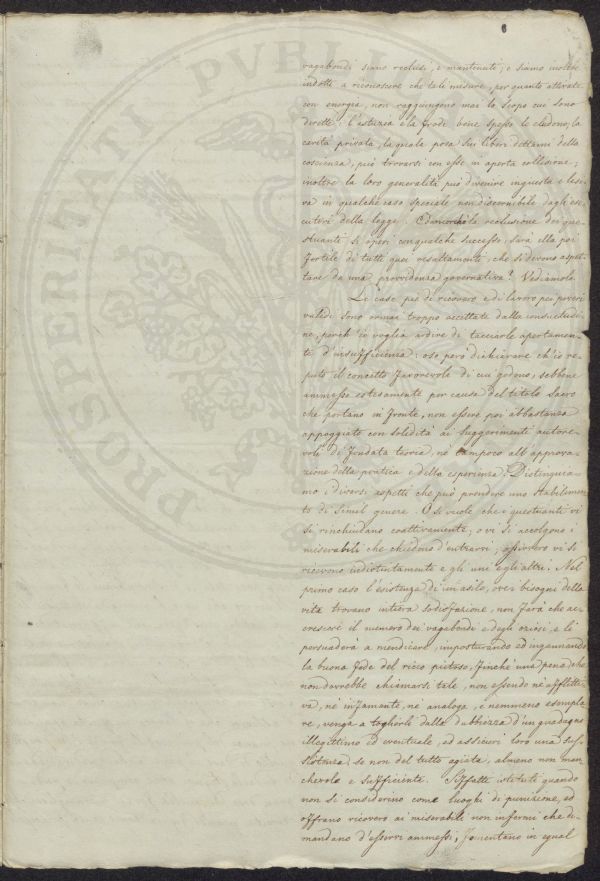 6
vagabondi siano reclusi, e mantenuti; e siamo inoltre
indotti a riconoscere che tali misure, per quanto attivate
con energia, non raggiungono mai lo scopo cui sono
dirette: l'astuzia e la frode bene spesso le eludono; la
carità privata, la quale posa sui liberi dettami della
coscienza, può trovarsi con esse in aperta collisione;
inoltre la loro generalità può divenire ingiusta e lesi-
va in qualche caso speciale non discernibile dagli ese-
cutori della legge. Comunque la reclusione dei que-
stuanti si operi con qualche successo, sarà ella poi
fertile di tutti quei resultamenti, che si devono aspet-
tare da una provvidenza governativa? Vediamolo.
Le case pie di ricovero e di lavoro pei poveri
validi sono ormai troppo accettate dalla consuetudi-
ne, perch'io voglia ardire di tacciarle apertamen-
te d'insufficienza: oso però dichiarare ch'io re-
puto il concetto favorevole di cui godono, sebbene
ammesso estesamente per causa del titolo sacro
che portano in fronte, non essere poi abbastanza
appoggiato con solidità ai suggerimenti autore-
voli di fondata teoria, nè tampoco all'approva-
zione della pratica e della esperienza. Distinguia-
mo i diversi aspetti che può prendere uno stabilimen-
to di simil genere. O si vuole che i questuanti vi
si rinchiudano coattivamente, o vi si accolgono i
miserabili che chiedono d'entrarvi, ossivvero vi si
ricevono indistintamente e gli uni e gli altri. Nel
primo caso l'esistenza di un asilo, ove i bisogni della
vita trovano intiera sodisfazione, non farà che ac-
crescere il numero dei vagabondi e degli oziosi, e li
persuaderà a mendicare, imposturando ed ingannando
la buona fede del ricco pietoso, finchè una pena che
non dovrebbe chiamarsi tale, non essendo nè afflitti-
va, nè infamante, nè analoga, e nemmeno esempla-
re, venga a toglierli dalla dubbiezza d'un guadagno
illegittimo ed eventuale, ed assicuri loro una sus-
sistenza, se non del tutto agiata, almeno non man-
chevole e sufficiente. Siffatti istituti quando
non si considerino come luoghi di punizione, ed
offrano ricovero ai miserabili non infermi che di-
mandano d'esservi ammessi, fomentano in egual